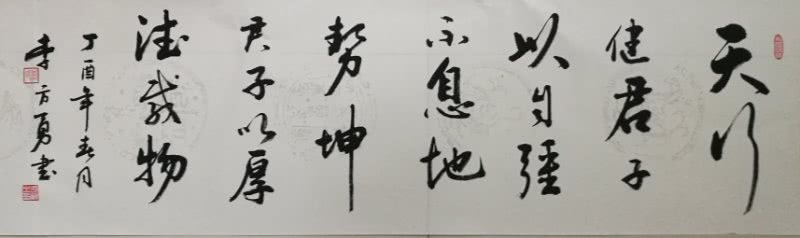 天行
健君子
以自强
不息地
势坤
君子以厚
德载物
丁酉年春月
李方勇书